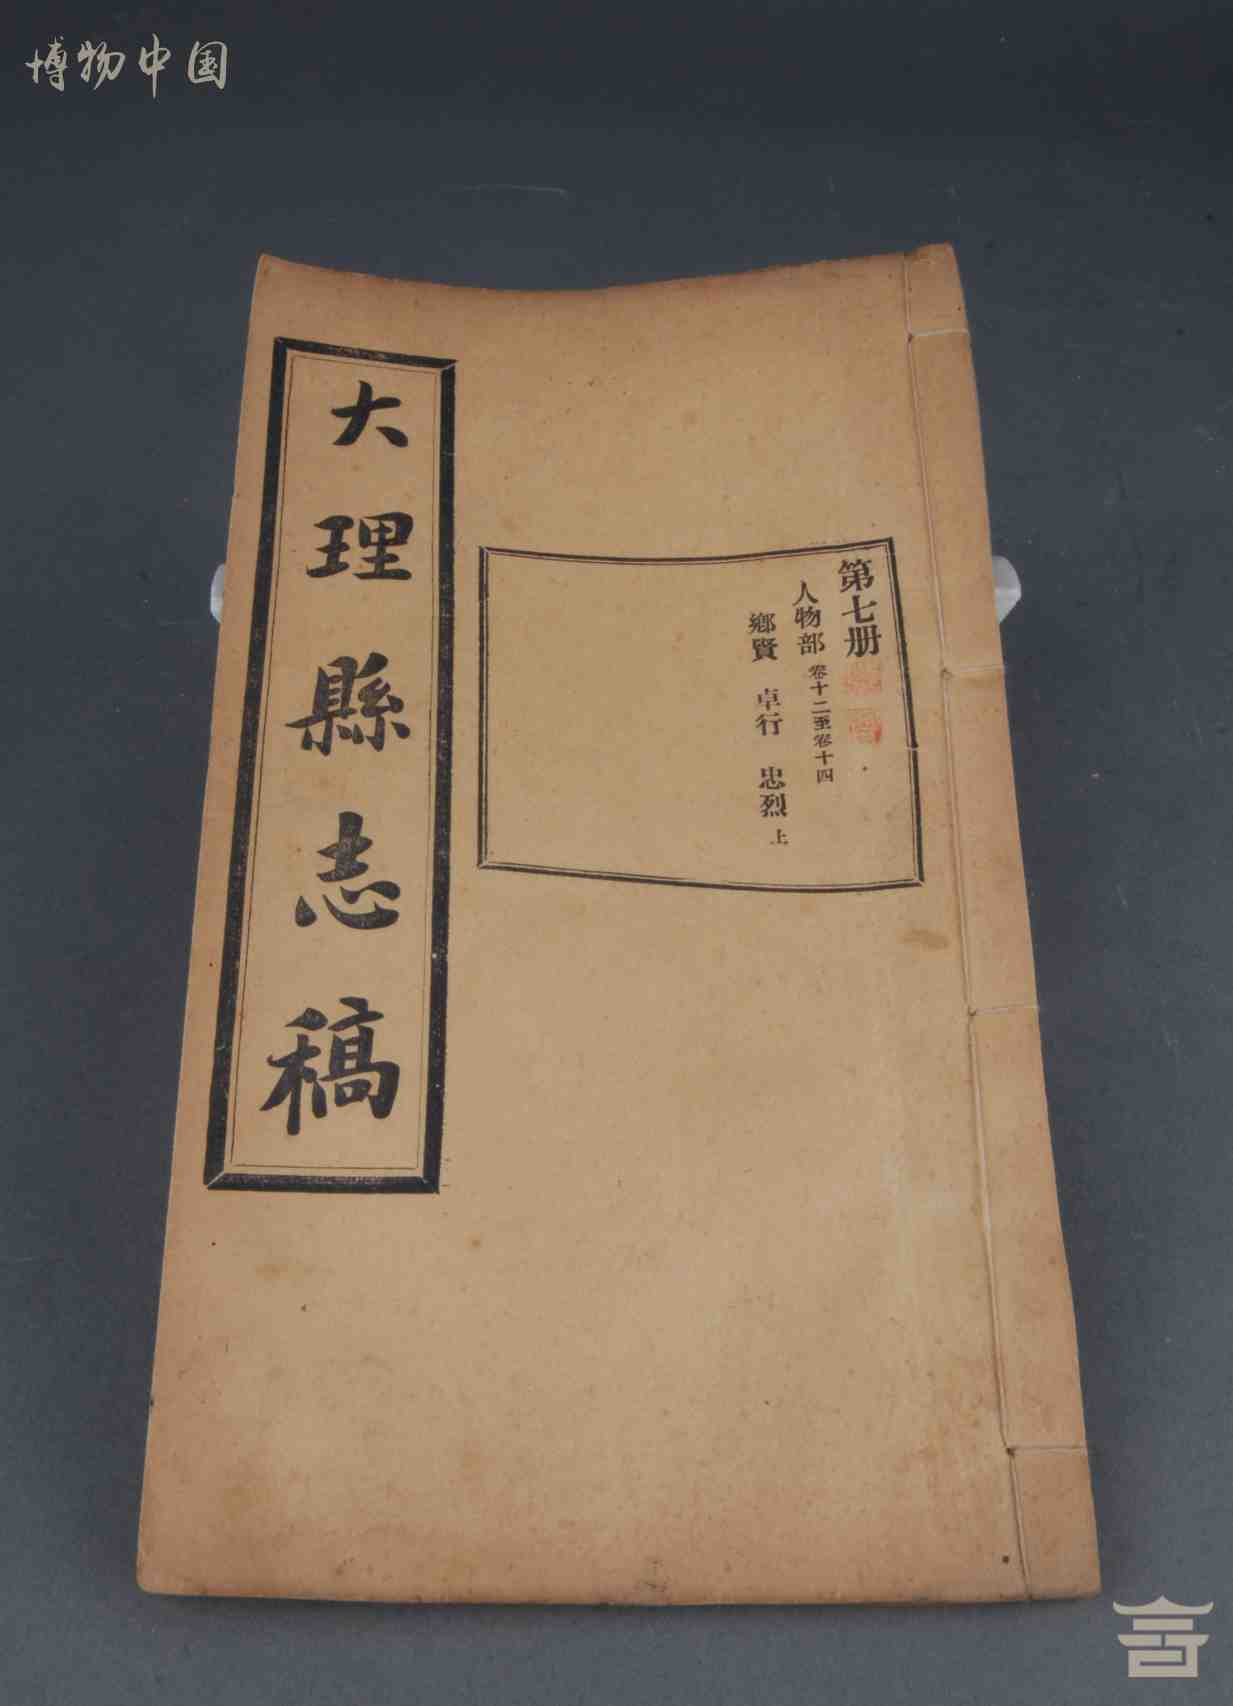 博物中国
大理縣志稿
第七册
人物部 卷十二至卷十四
鄉賢 卓行 忠烈 上